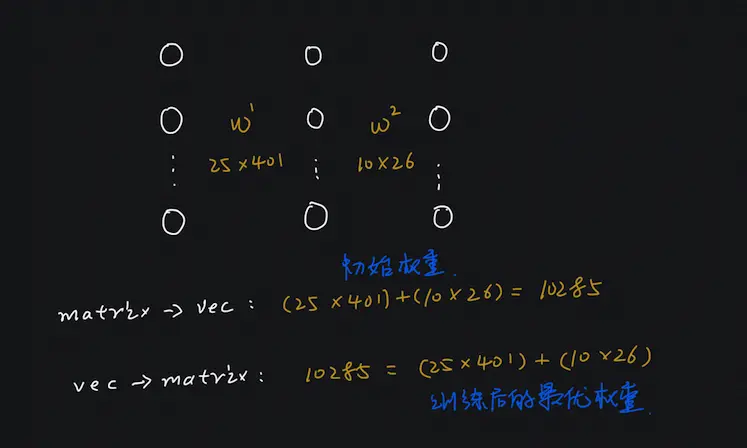 w¹ w²
25×401 10×26
初始权重.
matrix → vec: (25×401)+(10×26)=10285
vec → matrix: 10285 = (25×401)+(10×26)
训练后的最优权重.